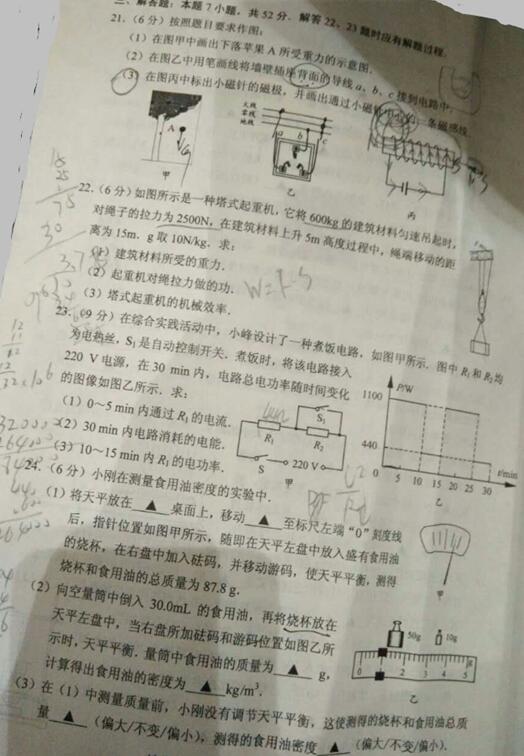 三、解答题：本题7小题，共52分．解答22、23题时应有解题过程．
21.（6分）按照题目要求作图：
（1）在图甲中画出下落苹果A所受重力的示意图．
（2）在图乙中用笔画线将墙壁插座背面的导线a、b、c接到电路中．
（3）在图丙中标出小磁针的磁极，并画出通过小磁针中心的一条磁感线
火线
零线
地线
A
G
a b c
甲
乙
丙
22.（6分）如图所示是一种塔式起重机，它将600kg的建筑材料匀速吊起时，
对绳子的拉力为2500N，在建筑材料上升5m高度过程中，绳端移动的距
离为15m．g取10N/kg．求：
（1）建筑材料所受的重力．
（2）起重机对绳拉力做的功．
（3）塔式起重机的机械效率．
23.（9分）在综合实践活动中，小峰设计了一种煮饭电路，如图甲所示．图中R₁和R₂均
为电热丝，S₁是自动控制开关．煮饭时，将该电路接入
220 V电源，在30 min内，电路总电功率随时间变化
的图像如图乙所示．求：
（1）0～5 min内通过R₁的电流．
（2）30 min内电路消耗的电能．
（3）10～15 min内R₁的电功率．
S₁
R₁
R₂
S
220 V
甲
P/W
1100
440
0 5 10 15 20 25 30
t/min
乙
24.（6分）小刚在测量食用油密度的实验中．
（1）将天平放在 ▲ 桌面上，移动 ▲ 至标尺左端“0”刻度线
后，指针位置如图甲所示，随即在天平左盘中放入盛有食用油
的烧杯，在右盘中加入砝码，并移动游码，使天平平衡，测得
烧杯和食用油的总质量为87.8 g．
（2）向空量筒中倒入30.0mL的食用油，再将烧杯放在
天平左盘中，当右盘所加砝码和游码位置如图乙所
示时，天平平衡．量筒中食用油的质量为 ▲ g，
计算得出食用油的密度为 ▲ kg/m³．
甲
50g
10g
0 1 2 3 4 5
乙
（3）在（1）中测量质量前，小刚没有调节天平平衡，这使测得的烧杯和食用油总质
量 ▲ （偏大/不变/偏小），测得的食用油密度 ▲ （偏大/不变/偏小）．